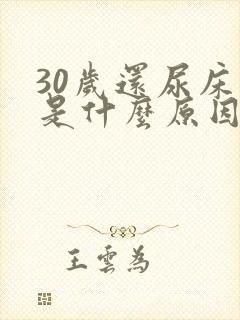 30歲還尿床
是什麼原因
王雲為